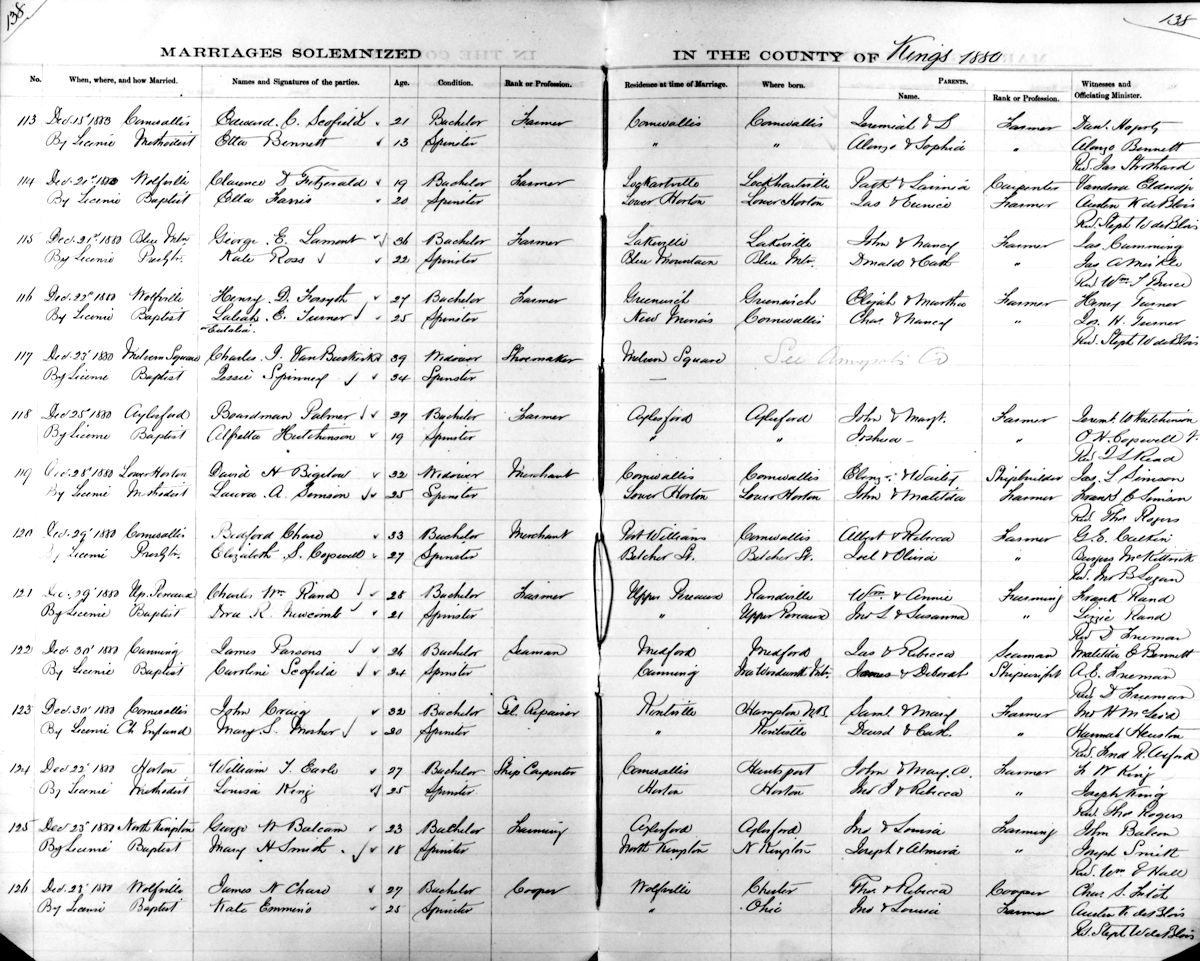 138
138
MARRIAGES SOLEMNIZED IN THE COUNTY OF Kings 1880
No. When, where, and how Married. Names and Signatures of the parties. Age. Condition. Rank or Profession. Residence at time of Marriage. Where born. PARENTS. Name. Rank or Profession. Witnesses and Officiating Minister.
113 Dec 15" 1880 Cornwallis Edward C. Scofield 21 Bachelor Farmer Cornwallis Cornwallis Jeremiah & S Farmer Danl. Hogarty
By Licenie Methodist Etta Bennett 13 Spinster " " Alonzo & Sophia " Alonzo Bennett
Rev. Jas Strothard
114 Dec. 21st 1880 Wolfville Clarence D Fitzgerald 19 Bachelor Farmer Lockartville Lockhartville Park & Lavinia Carpenter Vandora
By Licenie Baptist Etta Harris 20 Spinster Lower Horton Lower Horton Jas & Eunice Farmer Austen W de Blois
Rev. Steph W de Blois
115 Dec. 21st 1880 Blue Mtn George E. Lamont 36 Bachelor Farmer Lakeville Lakeville John & Nancy Farmer Jas Cumming
By Licenie Presbtn. Kate Ross 22 Spinster Blue Mountain Blue Mtn. Donald & Cath " Jas A Meikle
Rev Wm. T Bruce
116 Dec. 22nd 1880 Wolfville Henry D. Forsyth 27 Bachelor Farmer Greenwich Greenwich Elijah & Martha Farmer Henry Turner
By Licenie Baptist Laleah E. Turner 25 Spinster New Minas Cornwallis Chas & Nancy " Jos. H. Turner
Eulalia. Rev. Steph W de Blois
117 Dec 23rd 1880 Melvern Square Charles I. VanBuskirk 39 Widower Shoemaker Melvern Square See Annapolis Co
By License Baptist Jessie Spinney 34 Spinster —
118 Dec 25" 1880 Aylesford Boardman Palmer 27 Bachelor Farmer Aylesford Aylesford John & Margt. Farmer W Hutchinson
By License Baptist Alfretta Hutchinson 19 Spinster " " Joshua — " O. H. Cogswell
Rev. Read
119 Dec. 28" 1880 Lower Horton David H Bigelow 32 Widower Merchant Cornwallis Cornwallis Ebnr. & Shipbuilder Jas. L Simson
By Licenie Methodist Laura A. Simson 25 Spinster Lower Horton Lower Horton John & Matilda Farmer Frank C Simson
Rev. Thos Rogers
120 Dec. 29" 1880 Cornwallis Bedford Chase 33 Bachelor Merchant Port Williams Cornwallis Albert & Rebecca Farmer G. E. Calkin
By Licenie Presbtn. Elizabeth S. Cogswell 27 Spinster Belcher St. Belcher St. Joel & Olivia " Burpee McKittrick
Rev. Jno B Logan
121 Dec. 29" 1880 Up. Pereaux Charles Wm. Rand 28 Bachelor Farmer Upper Pereaux Randville Wm. & Annie Farming Frank Rand
By Licenie Baptist R. Newcomb 21 Spinster " Upper Pereaux Jno L & Susanna " Lizzie Rand
Rev D Freeman
122 Dec. 30" 1880 Canning James Parsons 26 Bachelor Seaman Medford Medford Jas & Rebecca Seaman Matilda C Bennett
By Licenie Baptist Caroline Scofield 24 Spinster Canning James & Deborah Shipwright A. E. Freeman
Rev D Freeman
123 Dec. 30" 1880 Cornwallis John Craig 32 Bachelor Tel. Repairer Kentville Hampton N.B Saml. & Mary Farmer Jno H McLeod
By Licenie Ch England Mary S. Mosher 20 Spinster " Kentville David & Cath. " Hannah Heuston
Rev. Fred R. Axford
124 Dec 22" 1880 Horton William T. Earle 27 Bachelor Ship Carpenter Cornwallis Hantsport John & Mary A. Farmer F. W King
By Licenie Methodist Louisa King 25 Spinster Horton Horton Jno J & Rebecca " Joseph King
Rev. Thos Rogers
125 Dec 23" 1880 North Kingston George W Balcam 23 Bachelor Farming Aylesford Aylesford Jno & Louisa Farming John Balcom
By Licenie Baptist Mary H Smith 18 Spinster North Kingston N Kingston Joseph & Almira " Joseph Smith
Rev. Wm E Hall
126 Dec. 23" 1880 Wolfville James N Chase 27 Bachelor Cooper Wolfville Chester Thos. & Rebecca Cooper Chas S. Fitch
By Licenie Baptist Kate Emmins 25 Spinster " Ohio Jno & Louisa Farmer Austen K de Blois
Rd. Steph W de Blois